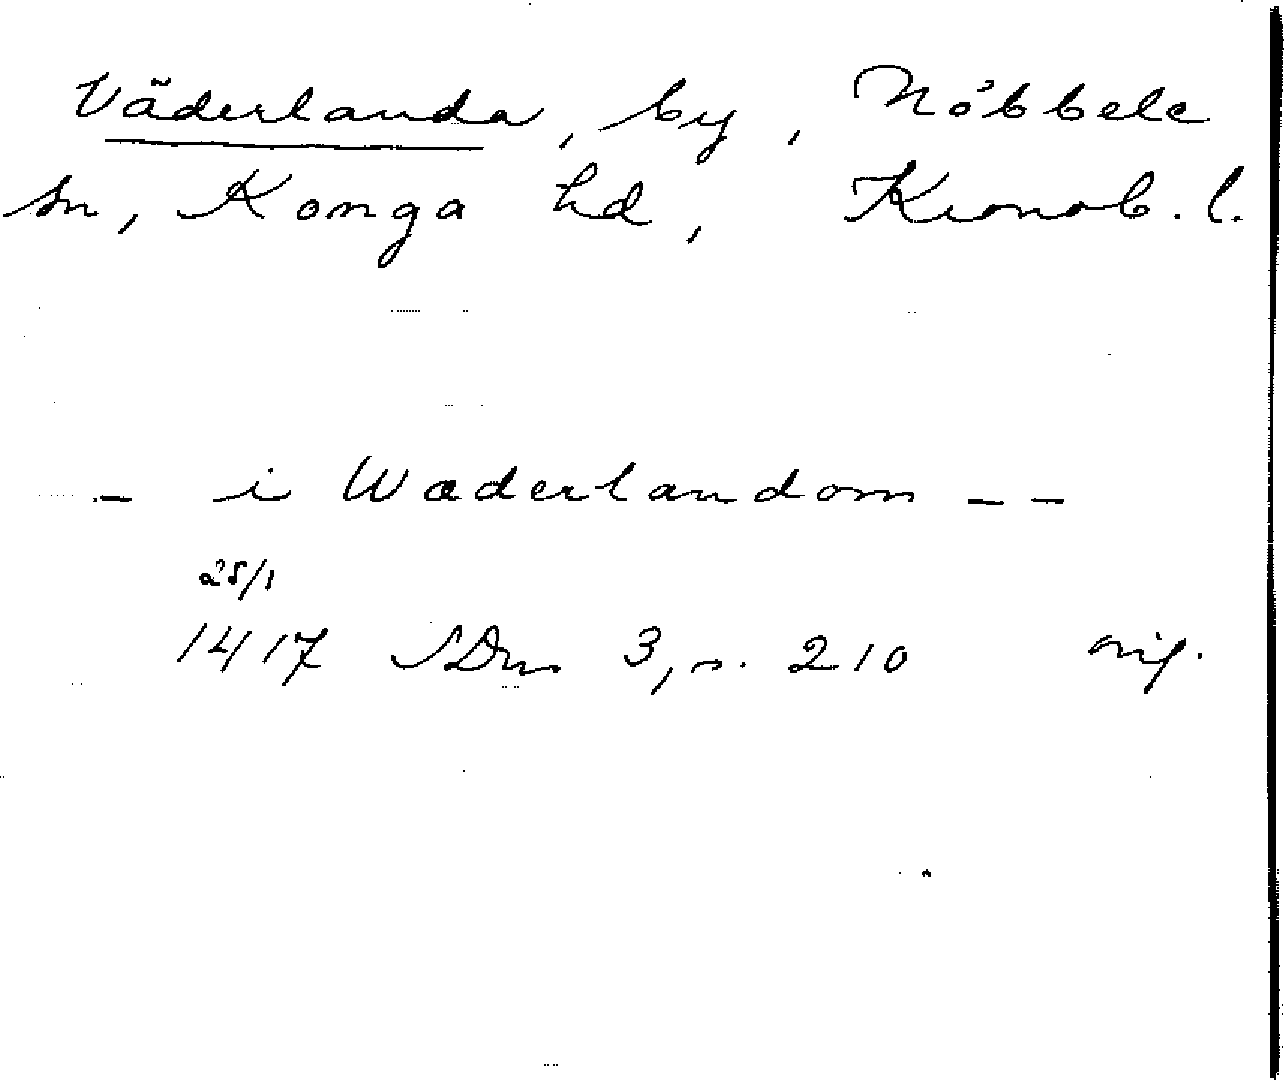 Väderlanda, by, Nöbbele
sn, Konga hd, Kronob. l.
- i Wæderlandom - -
25/1
1417 SDns 3, s. 210 orig.